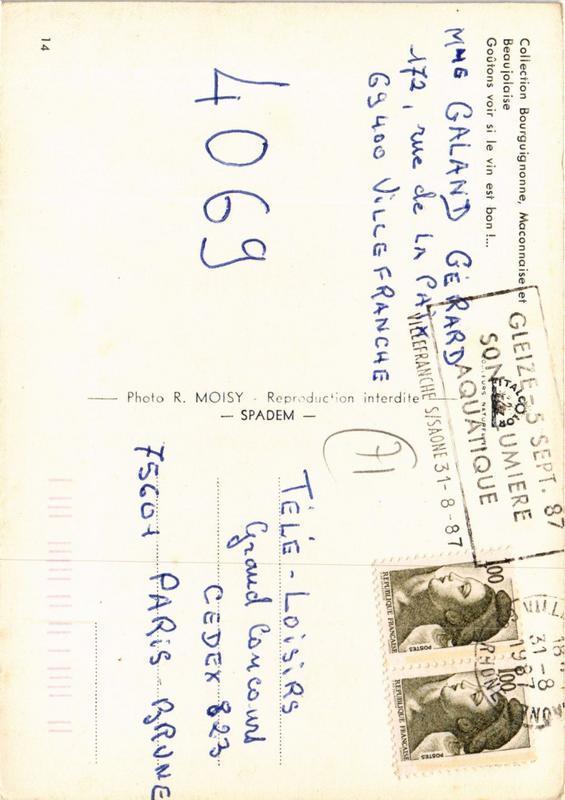 Collection Bourguignonne, Maconnaise et
Beaujolaise
Goûtons voir si le vin est bon !...
Mme GALAND GÉRARD
172, rue de LA PAIX
69400 VILLEFRANCHE
4069
14
Photo R. MOISY - Reproduction interdite
— SPADEM —
GLEIZE-5 SEPT. 87
SON LUMIERE
AQUATIQUE
VILLEFRANCHE S/SAONE 31-8-87
71
31-8
1987
RHONE
1,00
POSTES
REPUBLIQUE FRANÇAISE
1,00
POSTES
REPUBLIQUE FRANÇAISE
TÉLÉ-LOISIRS
Grand Concours
CEDEX 823
75601 PARIS-BRUNE